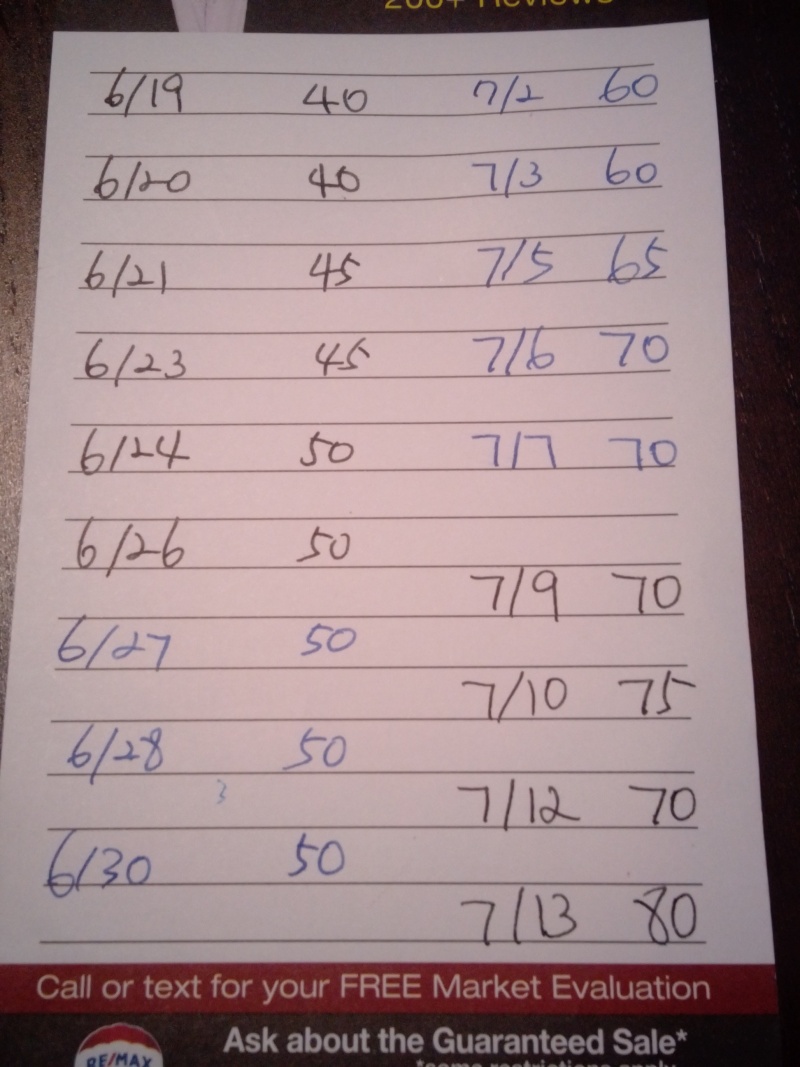 200+ Reviews
6/19 40 7/2 60
6/20 40 7/3 60
6/21 45 7/5 65
6/23 45 7/6 70
6/24 50 7/7 70
6/26 50
7/9 70
6/27 50
7/10 75
6/28 50
3
7/12 70
6/30 50
7/13 80
Call or text for your FREE Market Evaluation
Ask about the Guaranteed Sale*
*some restrictions apply
RE/MAX